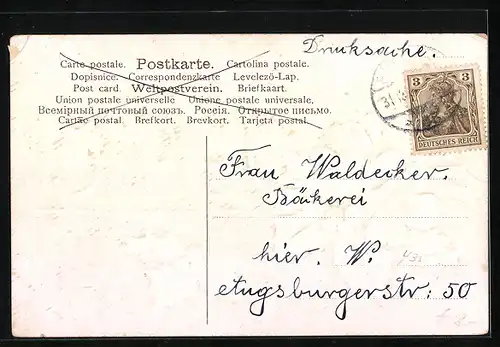 Drucksache.
Carte postale. Postkarte. Cartolina postale.
Dopisnice. Correspondenzkarte Levelező-Lap.
Post card. Weltpostverein. Briefkaart.
Union postale universelle Unione postale universale,
Всемірный почтовый союзъ. Россія. Открытое письмо.
Cartão postal. Brefkort. Brevkort. Tarjeta postal.
3 3
DEUTSCHES REICH
Frau Waldecker.
Bäckerei
hier. W.
Augsburgerstr: 50